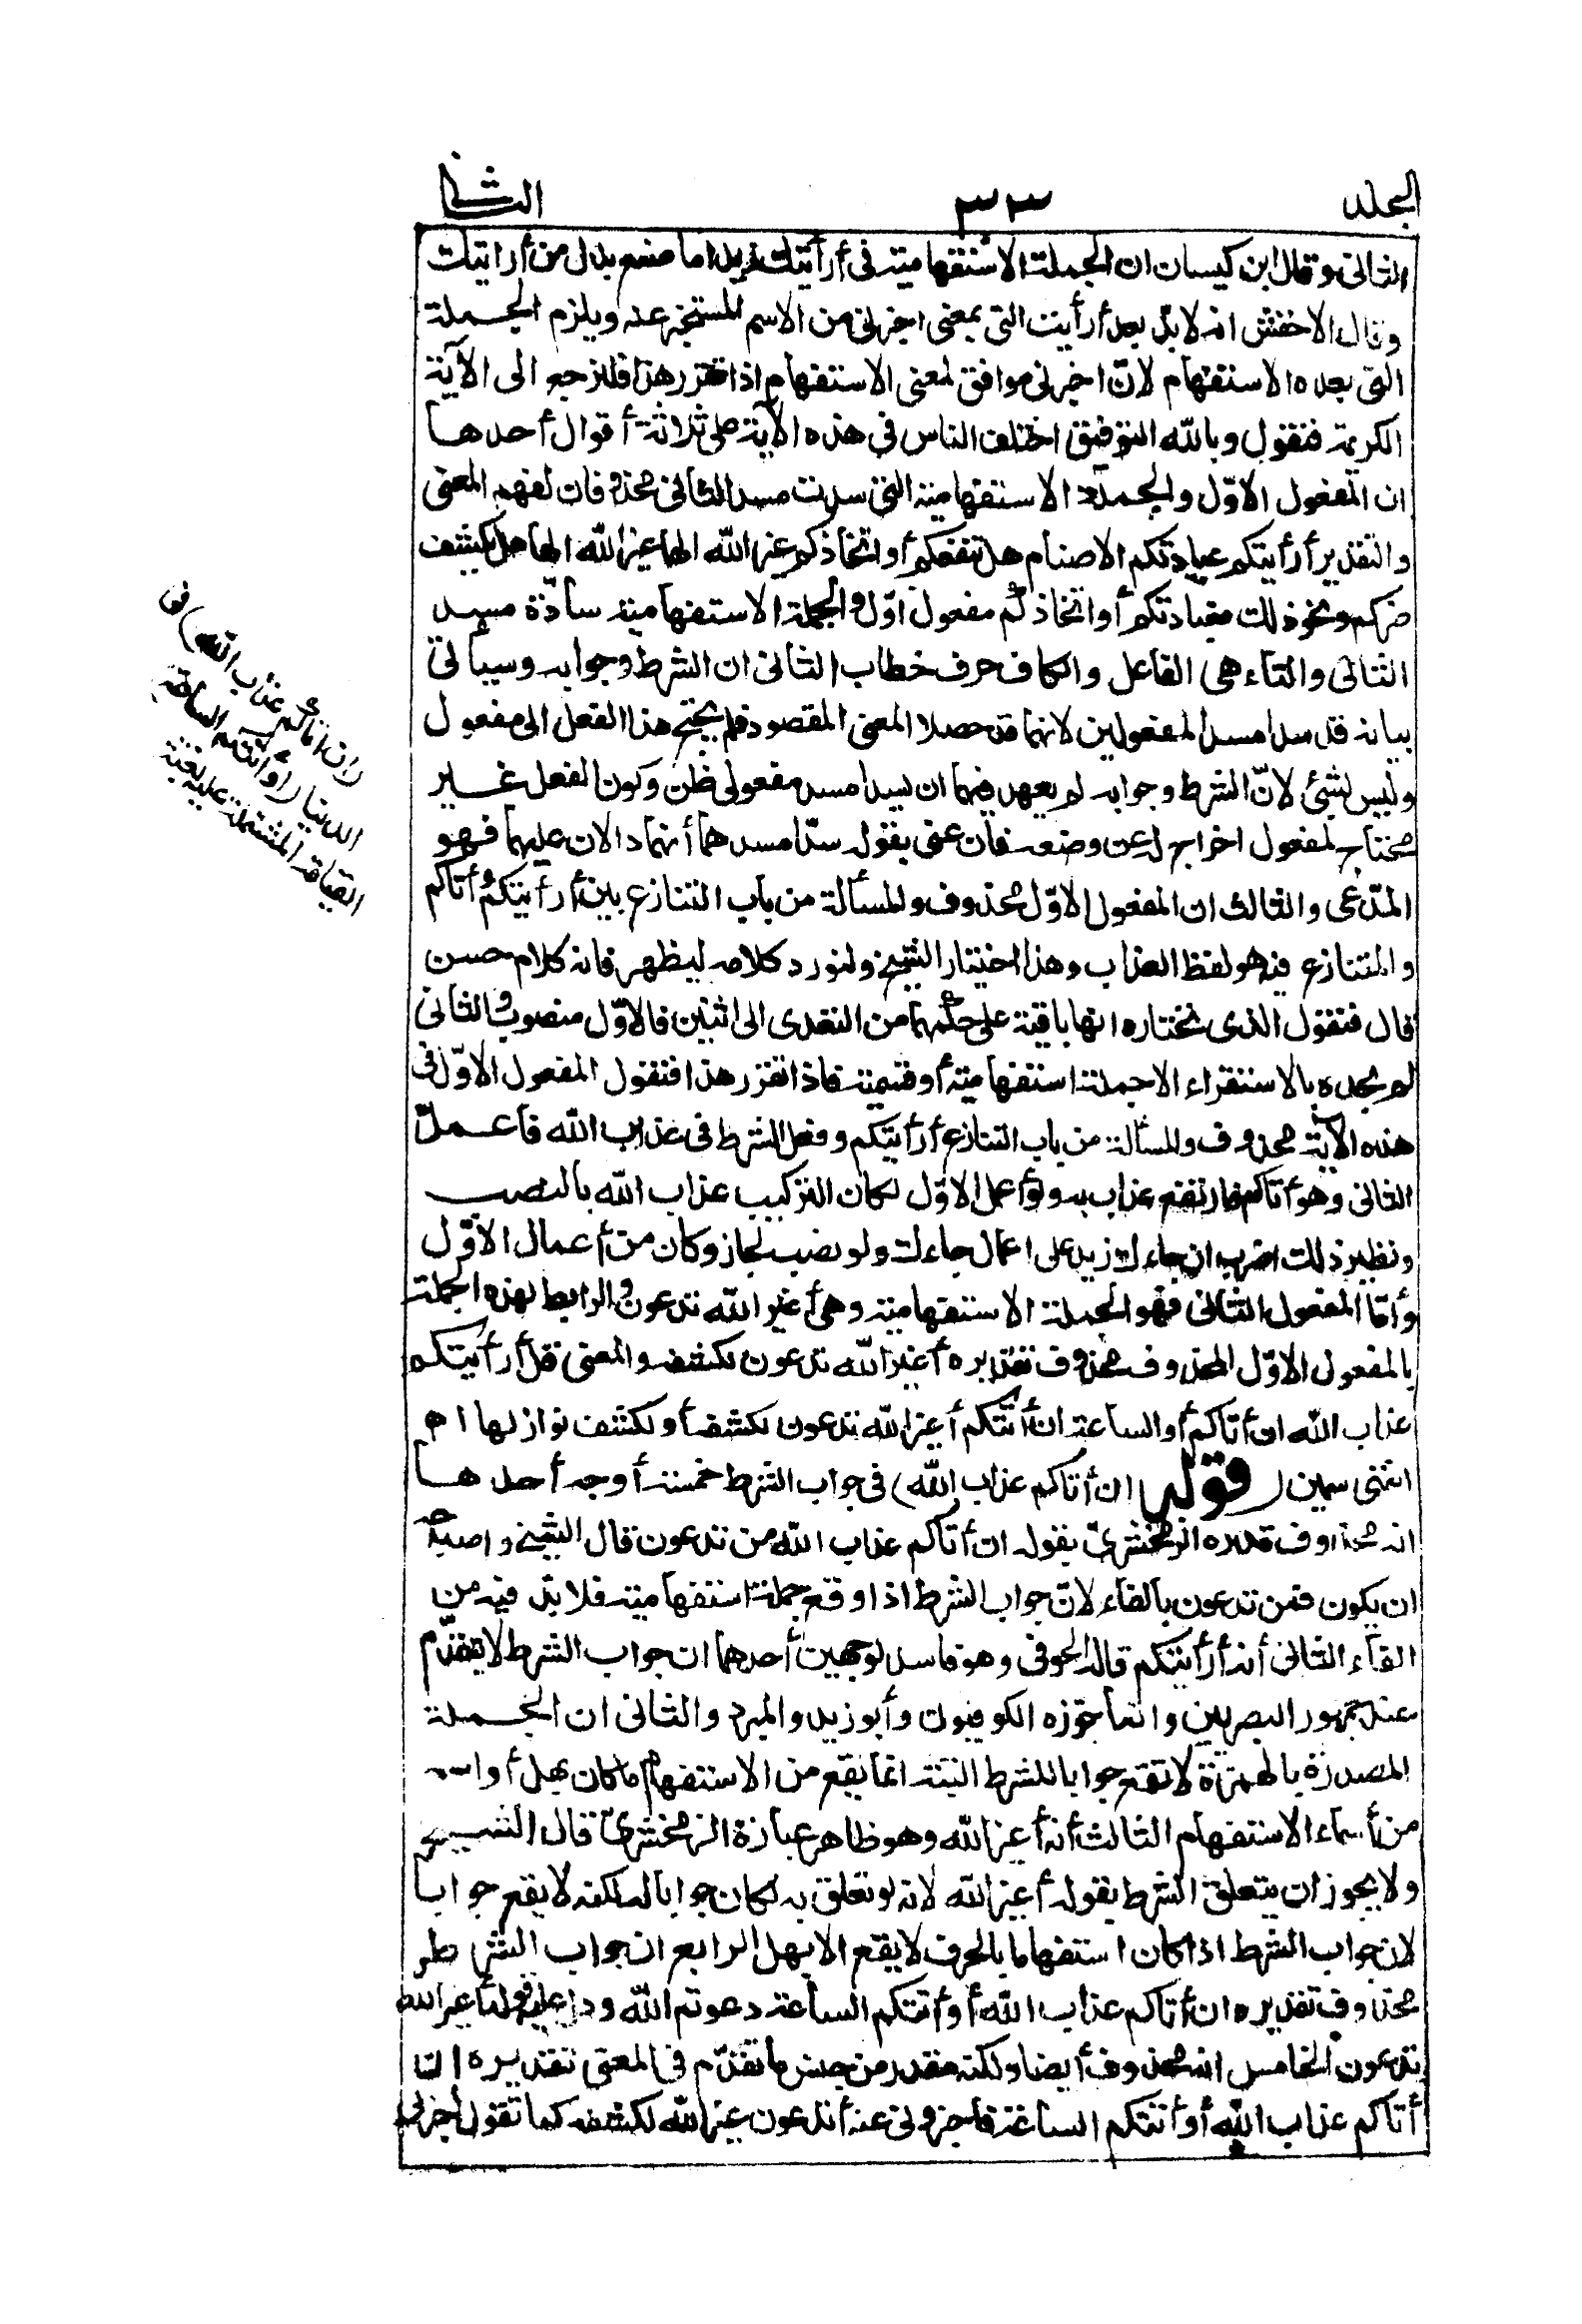 المجلد
٣٣
الثاني
الثاني وقال ابن كيسان ان الجملة الاستفهامية في أرأيتك زيدا ما صنع بدل من أرأيتك
وقال الاخفش انه لا بدّ بعد أرأيت التي بمعنى اخبرني من الاسم المستخبر عنه ويلزم الجملة
التي بعده الاستفهام لانّ اخبرني موافق لمعنى الاستفهام اذا تقرر هذا فلنرجع الى الآية
الكريمة فنقول وبالله التوفيق اختلف الناس في هذه الآية على ثلاثة أقوال أحدها
ان المفعول الاوّل والجملة الاستفهامية التي سدت مسد الثاني محذوفان لفهم المعنى
والتقدير أرأيتكم عبادتكم الاصنام هل تنفعكم أو اتخاذكم غير الله الها هل يكشف
ضركم ونحو ذلك فعبادتكم أو اتخاذكم مفعول اوّل والجملة الاستفهامية سادّة مسد
الثاني والتاء هي الفاعل والكاف حرف خطاب الثاني ان الشرط وجوابه وسيأتي
بيانه قد سدا مسد المفعولين لانهما قد حصلا المعنى المقصود فلم يحتج هذا الفعل الى مفعول
وليس بشئ لانّ الشرط وجوابه لم يعهد فيهما ان يسدا مسد مفعولي ظن وكون الفعل غير
محتاج لمفعول اخراج له عن وضعه فان عنى بقوله سدّا مسدهما أنهما دالان عليهما فهو
المدّعى والثالث ان المفعول الاوّل محذوف والمسألة من باب التنازع بين أرأيتكم وأتاكم
والمتنازع فيه هو لفظ العذاب وهذا اختيار الشيخ ولنورد كلامه ليظهر فانه كلام حسن
قال فنقول الذي نختاره انها باقية على حكمها من التعدى الى اثنين فالاوّل منصوب والثاني
لم نجده بالاستقراء الا جملة استفهامية أو قسمية فاذا تقرر هذا فنقول المفعول الاوّل في
هذه الآية محذوف والمسألة من باب التنازع أرأيتكم وفعل الشرط في عذاب الله فأعمل
الثاني وهو أتاكم فارتفع عذاب به ولو أعمل الاوّل لكان التركيب عذاب الله بالنصب
ونظير ذلك اضرب ان جاءك زيد على اعمال جاءك ولو نصب لجاز وكان من أعمال الاوّل
وأمّا المفعول الثاني فهو الجملة الاستفهامية وهي أغير الله تدعون والرابط لهذه الجملة
بالمفعول الاوّل المحذوف محذوف تقديره أغير الله تدعون لكشفه والمعنى قل أرأيتكم
عذاب الله ان أتاكم أو الساعة ان أتتكم أغير الله تدعون لكشفه أو لكشف نوازلها ا م
انتهى سمين (قوله ان أتاكم عذاب الله) في جواب الشرط خمسة أوجه أحدها
انه محذوف قدره الزمخشريّ بقوله ان أتاكم عذاب الله من تدعون قال الشيخ واصلاحه
ان يكون فمن تدعون بالفاء لانّ جواب الشرط اذا وقع جملة استفهامية فلا بدّ فيه من
الفاء الثاني أنه أرأيتكم قاله الحوفي وهو فاسد لوجهين أحدهما ان جواب الشرط لا يتقدّم
عند جمهور البصريين وانما جوّزه الكوفيون وأبو زيد والمبرد والثاني ان الجملة
المصدرة بالهمزة لا تقع جوابا للشرط البتة انما يقع من الاستفهام ما كان بهل أو اسم
من أسماء الاستفهام الثالث أنه أغير الله وهو ظاهر عبارة الزمخشريّ قال الشيخ
ولا يجوز ان يتعلق الشرط بقوله أغير الله لانه لو تعلق به لكان جوابا له لكنه لا يقع جوابا
لان جواب الشرط اذا كان استفهاما بالحرف لا يقع الا بهل الرابع ان جواب الشرط
محذوف تقديره ان أتاكم عذاب الله أو أتتكم الساعة دعوتم الله ودل عليه قوله أغير الله
تدعون الخامس انه محذوف أيضا ولكنه مقدر من جنس ما تقدّم في المعنى تقديره ان
أتاكم عذاب الله أو أتتكم الساعة فأخبروني عنه أتدعون غير الله لكشفه كما تقول أخبرني
(ان أتاكم عذاب الله) في
الدنيا (أو أتتكم الساعة)
القيامة المشتملة عليه بغتة